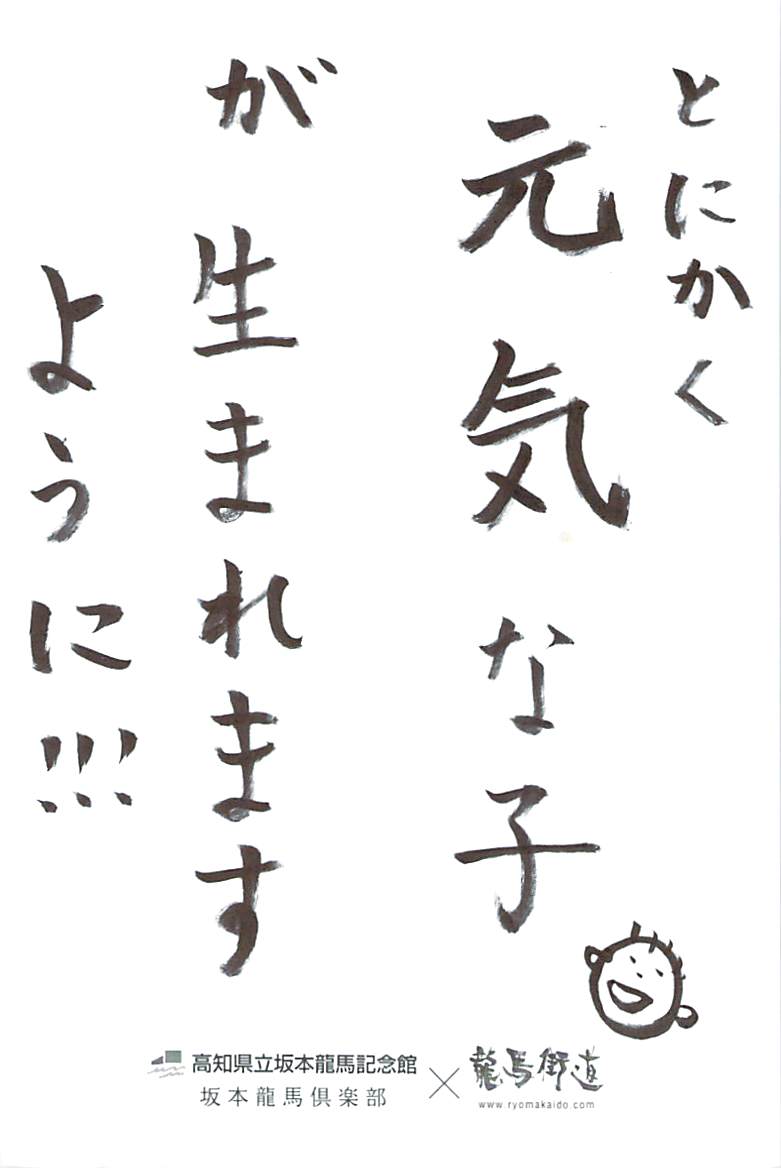 とにかく
元気な子
が生まれます
ように!!!
高知県立坂本龍馬記念館
坂本龍馬倶楽部
×
龍馬街道
www.ryomakaido.com